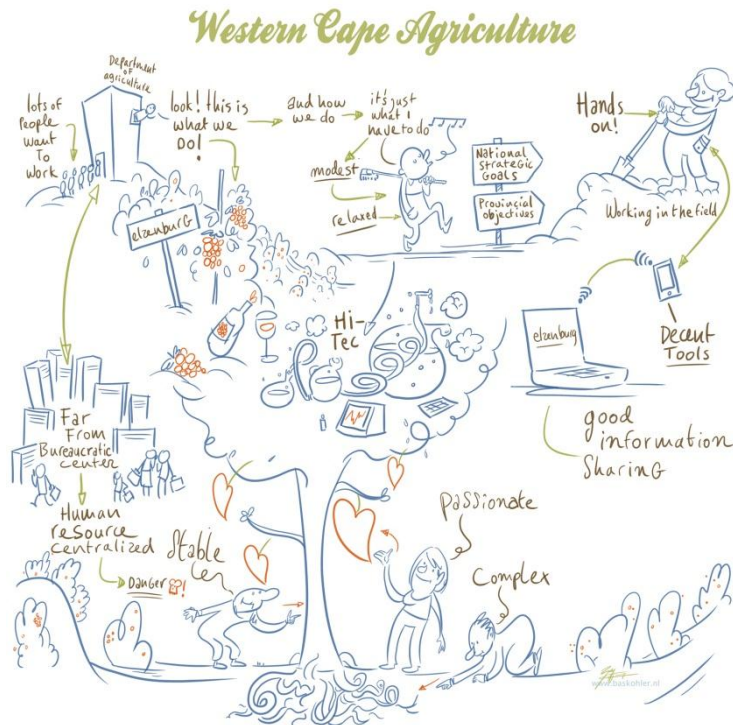 Western Cape Agriculture
Department
of
agriculture
lots of
people
want
to
work
look! this is
what we
Do!
and how
we do
it's just
what I
have to do
modest
relaxed
National
Strategic
Goals
Provincial
objectives
Hands
on!
Working in the field
elzenburg
Hi-
Tec
elzenburg
Decent
Tools
good
information
sharing
Far
From
Bureaucratic
center
Human
resource
centralized
Danger!
Stable
passionate
Complex
www.baskohler.nl